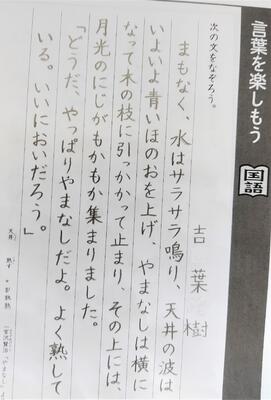 言葉を楽しもう
国語
次の文をなぞろう。
吉葉 樹
まもなく、水はサラサラ鳴り、天井の波は
いよいよ青いほのおを上げ、やまなしは横に
なって木の枝に引っかかって止まり、その上には、
月光のにじがもかもか集まりました。
「どうだ、やっぱりやまなしだよ。よく熟して
いる。いいにおいだろう。」
天井
熟す